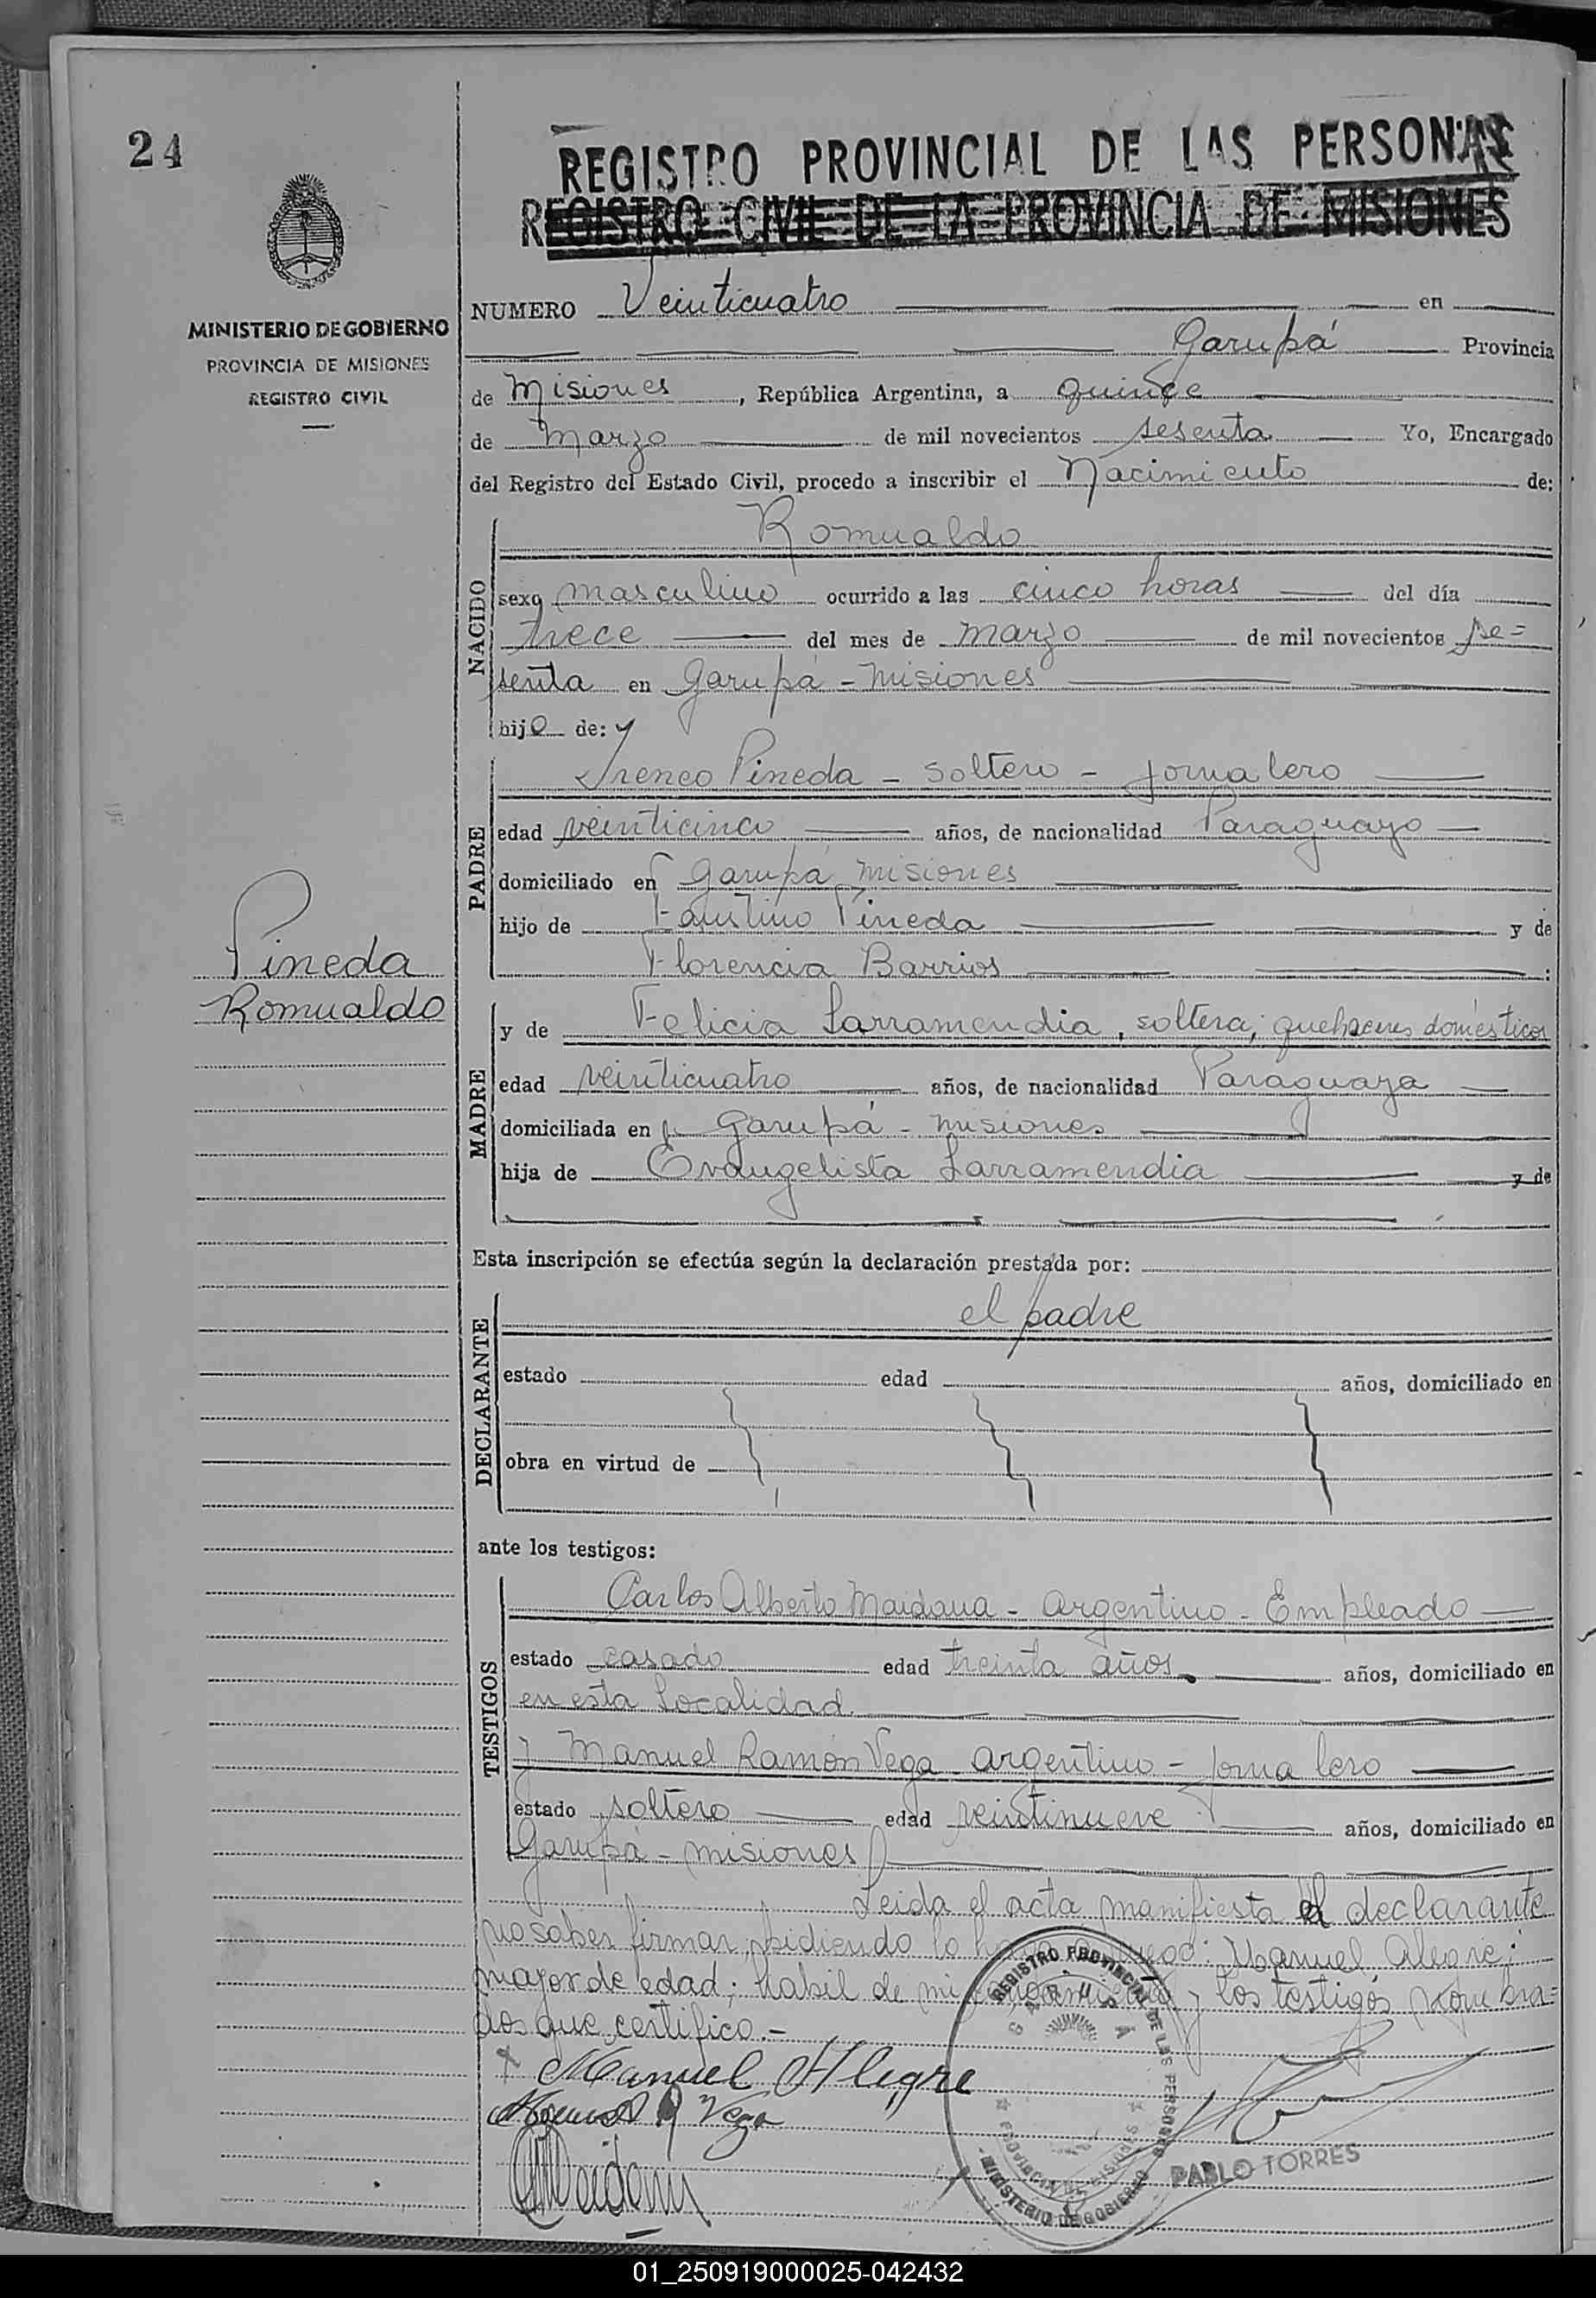 24
REGISTRO PROVINCIAL DE LAS PERSONAS
REGISTRO CIVIL DE LA PROVINCIA DE MISIONES
MINISTERIO DE GOBIERNO
PROVINCIA DE MISIONES
REGISTRO CIVIL
NUMERO Veinticuatro en
Garupá Provincia
de Misiones, República Argentina, a quince
de Marzo de mil novecientos sesenta Yo, Encargado
del Registro del Estado Civil, procedo a inscribir el Nacimiento de:
NACIDO
Romualdo
sexo masculino ocurrido a las cinco horas del día
trece del mes de marzo de mil novecientos se=
senta en Garupá - Misiones
hijo de:
PADRE
Ireneo Pineda - soltero - jornalero
edad veinticinco años, de nacionalidad Paraguayo
domiciliado en Garupá Misiones
hijo de Faustino Pineda y de
Florencia Barrios :
Pineda
Romualdo
MADRE
y de Felicia Larramendia, soltera; quehaceres domésticos
edad veinticuatro años, de nacionalidad Paraguaya
domiciliada en Garupá - Misiones
hija de Evangelista Larramendia y de
Esta inscripción se efectúa según la declaración prestada por:
DECLARANTE
el padre
estado edad años, domiciliado en
obra en virtud de
ante los testigos:
TESTIGOS
Carlos Alberto Maidana - Argentino - Empleado
estado casado edad treinta años. años, domiciliado en
en esta Localidad.
y Manuel Ramón Vega - argentino - jornalero
estado soltero edad veintinueve años, domiciliado en
Garupá - misiones
Leida el acta manifiesta el declarante
no saber firmar, pidiendo lo haga a ruego: Manuel Alegre;
mayor de edad; habil de mi conocimiento y los testigos nombra=
dos que certifico.-
x Manuel Alegre
Manuel R Vega
CMaidana
REGISTRO PROVINCIAL DE LAS PERSONAS
GARUPÁ
PROVINCIA DE MISIONES
MINISTERIO DE GOBIERNO
PABLO TORRES
01_250919000025-042432